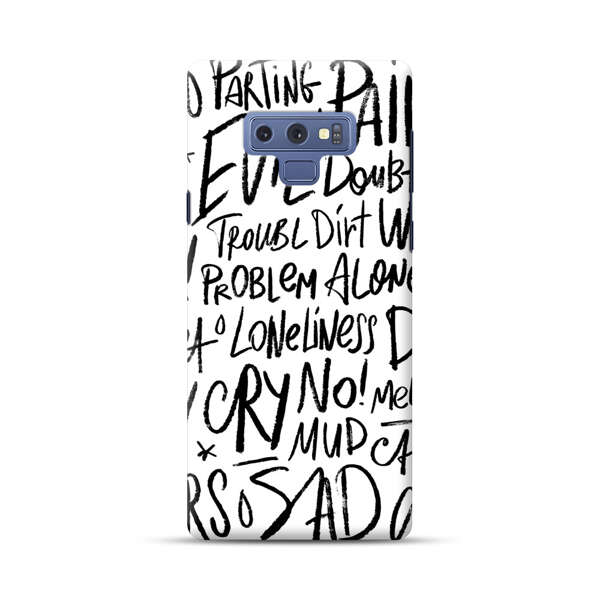 PARTING PAiN
EViL Doub
TROUBL DirT W
PROBLEM ALONE
LONELiNESS D
CRY NO! Me
MUD CA
RS SAD